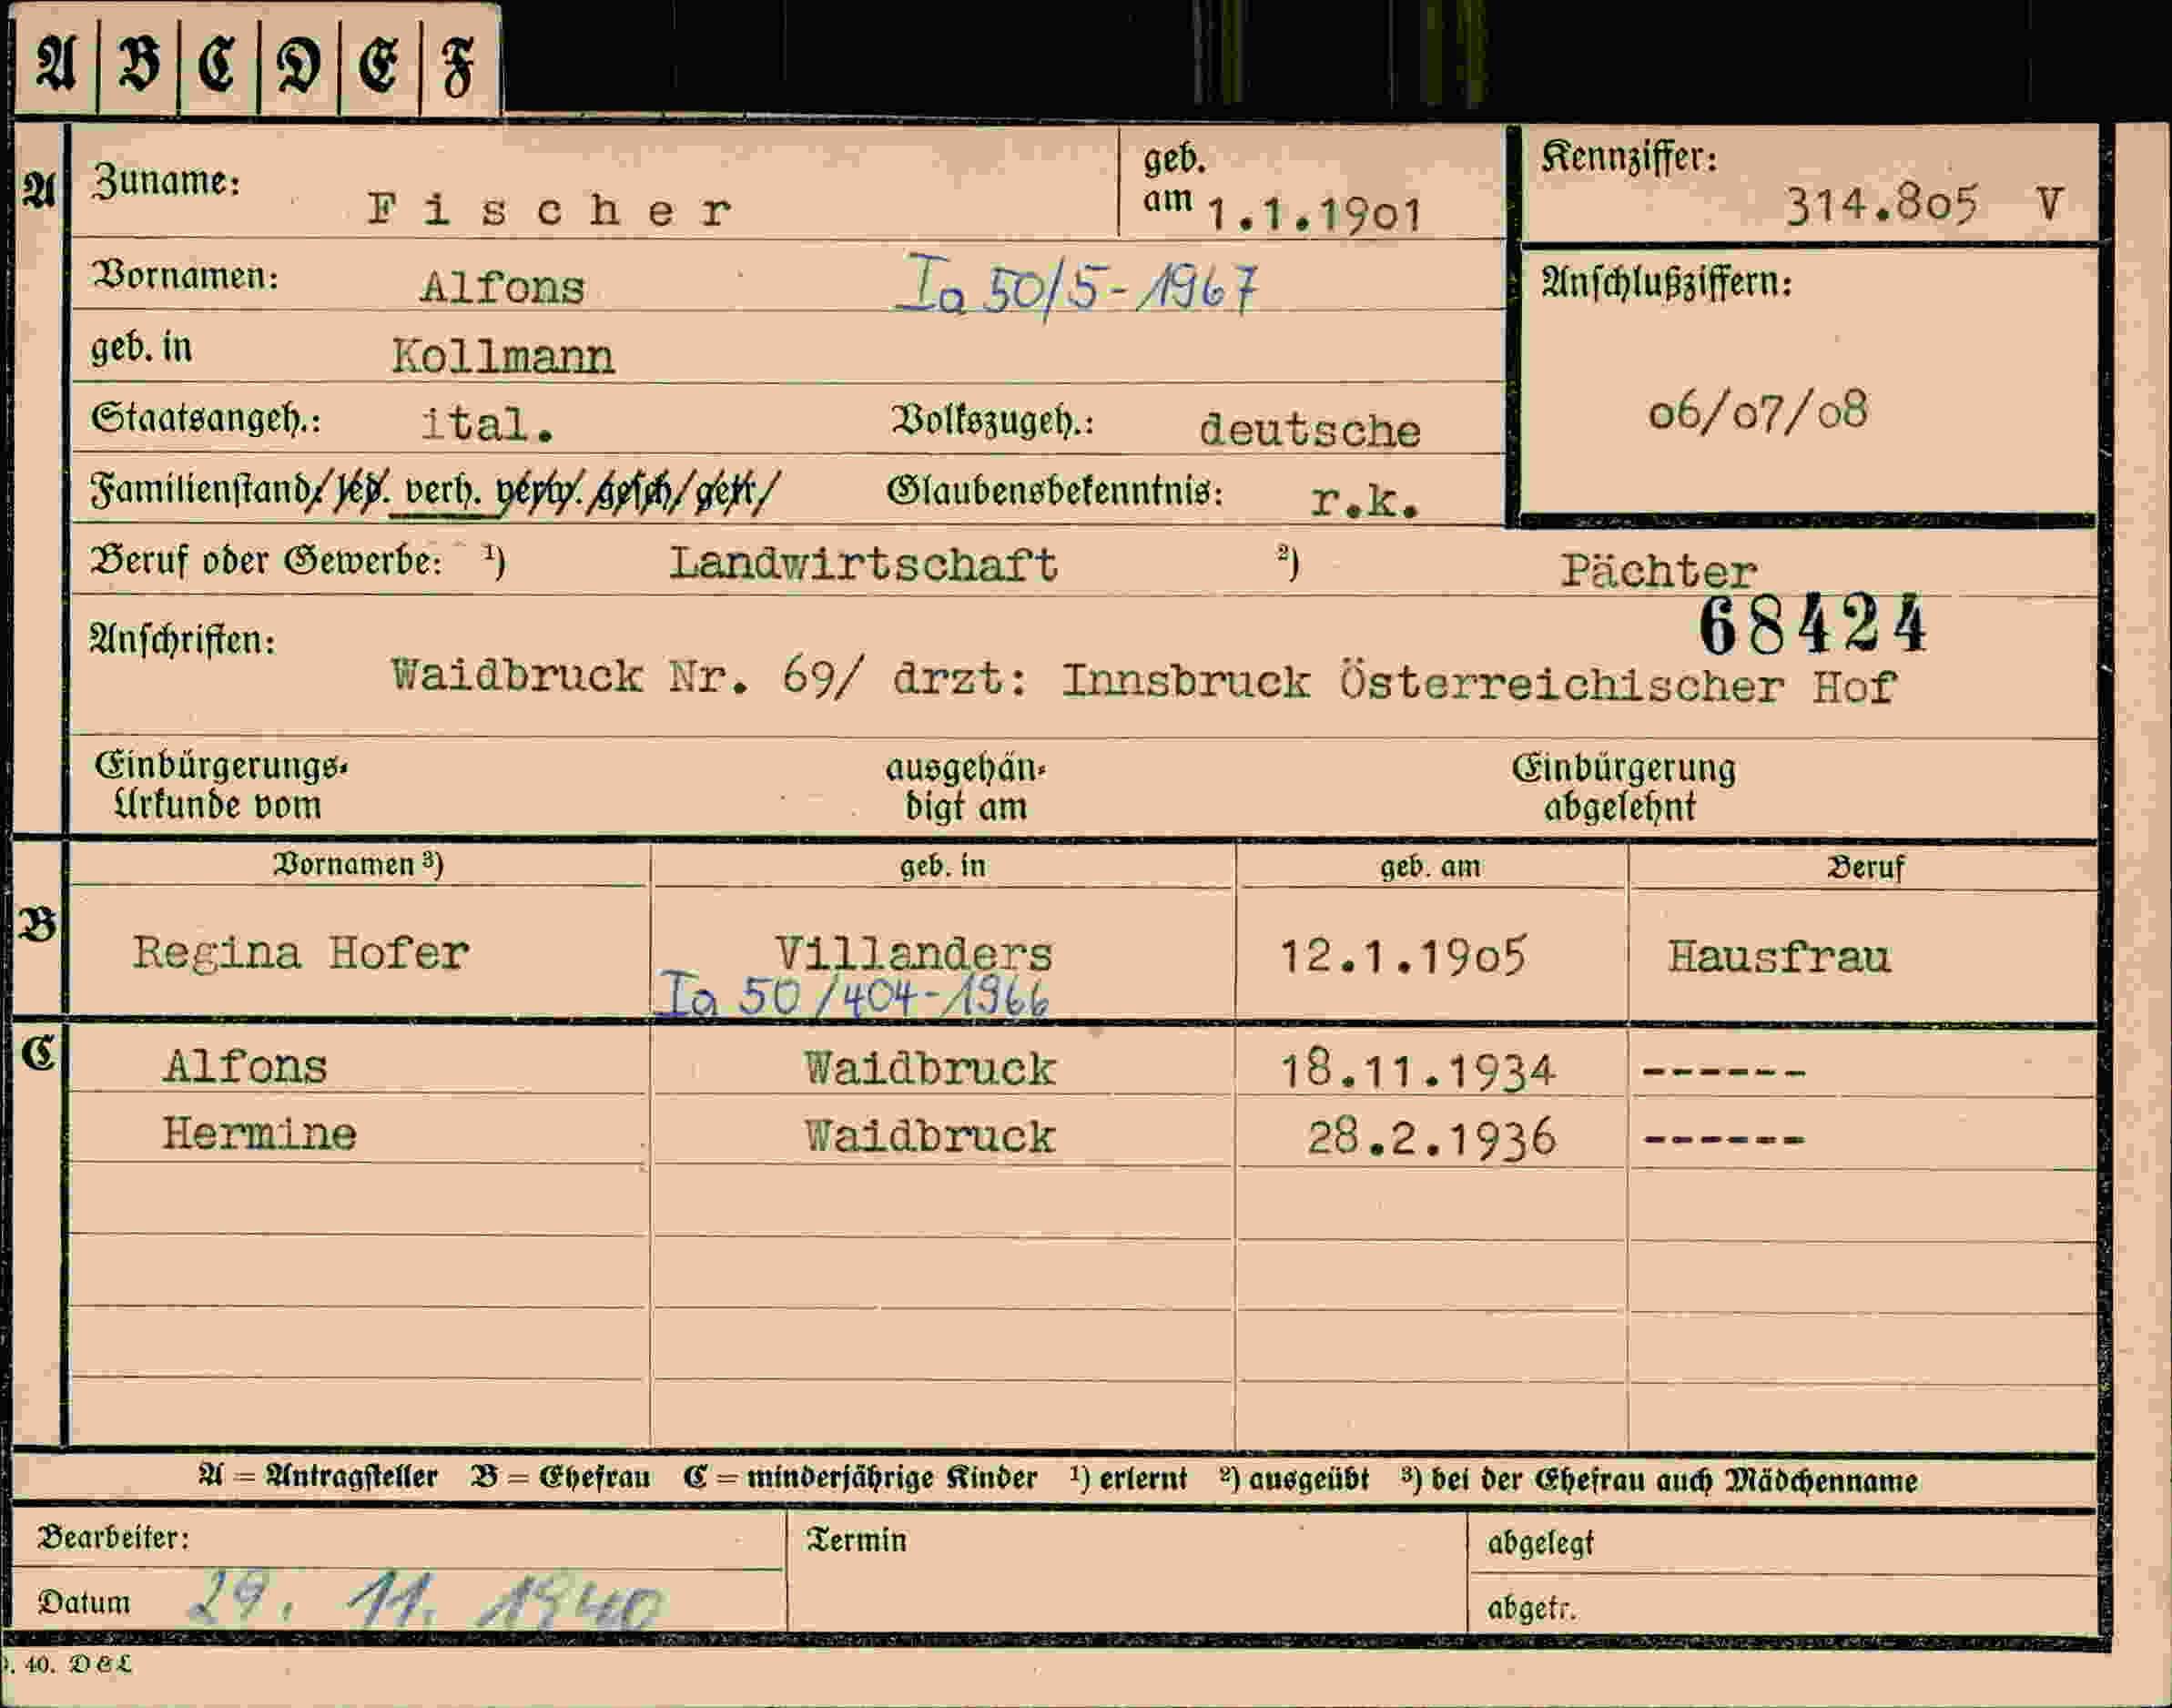 A B C D E F
A Zuname: Fischer geb. am 1.1.1901 Kennziffer: 314.805 V
Vornamen: Alfons Ia 50/5-1967 Anschlußziffern:
geb. in Kollmann
06/07/08
Staatsangeh.: ital. Volkszugeh.: deutsche
Familienstand: led. verh. verw. gesch. getr. Glaubensbekenntnis: r.k.
Beruf oder Gewerbe: 1) Landwirtschaft 2) Pächter
68424
Anschriften:
Waidbruck Nr. 69/ drzt: Innsbruck Österreichischer Hof
Einbürgerungs- ausgehän- Einbürgerung
Urkunde vom digt am abgelehnt
Vornamen 3) geb. in geb. am Beruf
B Regina Hofer Villanders 12.1.1905 Hausfrau
Ia 50/404-1966
C Alfons Waidbruck 18.11.1934 ------
Hermine Waidbruck 28.2.1936 ------
A = Antragsteller B = Ehefrau C = minderjährige Kinder 1) erlernt 2) ausgeübt 3) bei der Ehefrau auch Mädchenname
Bearbeiter: Termin abgelegt
Datum 29. 11. 1940 abgetr.
. 40. D & L